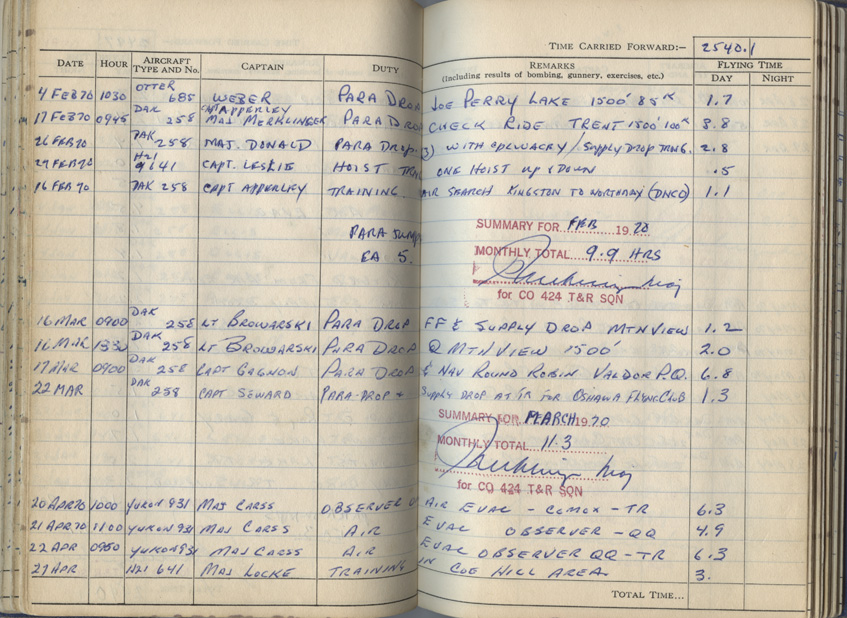 TIME CARRIED FORWARD:– 2540.1
DATE HOUR AIRCRAFT TYPE AND No. CAPTAIN DUTY REMARKS (Including results of bombing, gunnery, exercises, etc.) FLYING TIME DAY NIGHT
4 FEB 70 1030 OTTER 685 WEBER PARA DROP JOE PERRY LAKE 1500' 85K 1.7
17 FEB 70 0945 DAK 258 APPERLEY MAJ MERKLINGER PARA DROP CHECK RIDE TRENT 1500' 100K 3.8
26 FEB 70 DAK 258 MAJ. DONALD PARA DROP. 3) WITH SUPPLY DROP TRNG. 2.8
27 FEB 70 H21 9641 CAPT. LESLIE HOIST ONE HOIST UP & DOWN .5
16 FEB 70 DAK 258 CAPT APPERLEY TRAINING. AIR SEARCH KINGSTON TO NORTHBAY (DNCO) 1.1
PARA JUMPS
EA 5.
SUMMARY FOR FEB 19.70
MONTHLY TOTAL 9.9 HRS
Maj
for CO 424 T&R SQN
16 MAR 0900 DAK 258 LT BROWARSKI PARA DROP FF & SUPPLY DROP MTN VIEW 1.2
16 MAR 1330 DAK 258 LT BROWARSKI PARA DROP Q MTN VIEW 1500' 2.0
17 MAR 0900 DAK 258 CAPT GAGNON PARA DROP & NAV ROUND ROBIN VALDOR P.Q. 6.8
22 MAR DAK 258 CAPT SEWARD PARA-DROP + SUPPLY DROP AT TR FOR OSHAWA FLYING CLUB 1.3
SUMMARY FOR MARCH 19.70
MONTHLY TOTAL 11.3
Maj
for CO 424 T&R SQN
20 APR 70 1000 YUKON 931 MAJ CARSS OBSERVER AIR EVAL - COMOX - TR 6.3
21 APR 70 1100 YUKON 931 MAJ CARSS AIR EVAL OBSERVER - QQ 4.9
22 APR 0950 YUKON 931 MAJ CARSS AIR EVAL OBSERVER QQ - TR 6.3
27 APR H21 641 MAJ LOCKE TRAINING IN COE HILL AREA. 3.
TOTAL TIME...